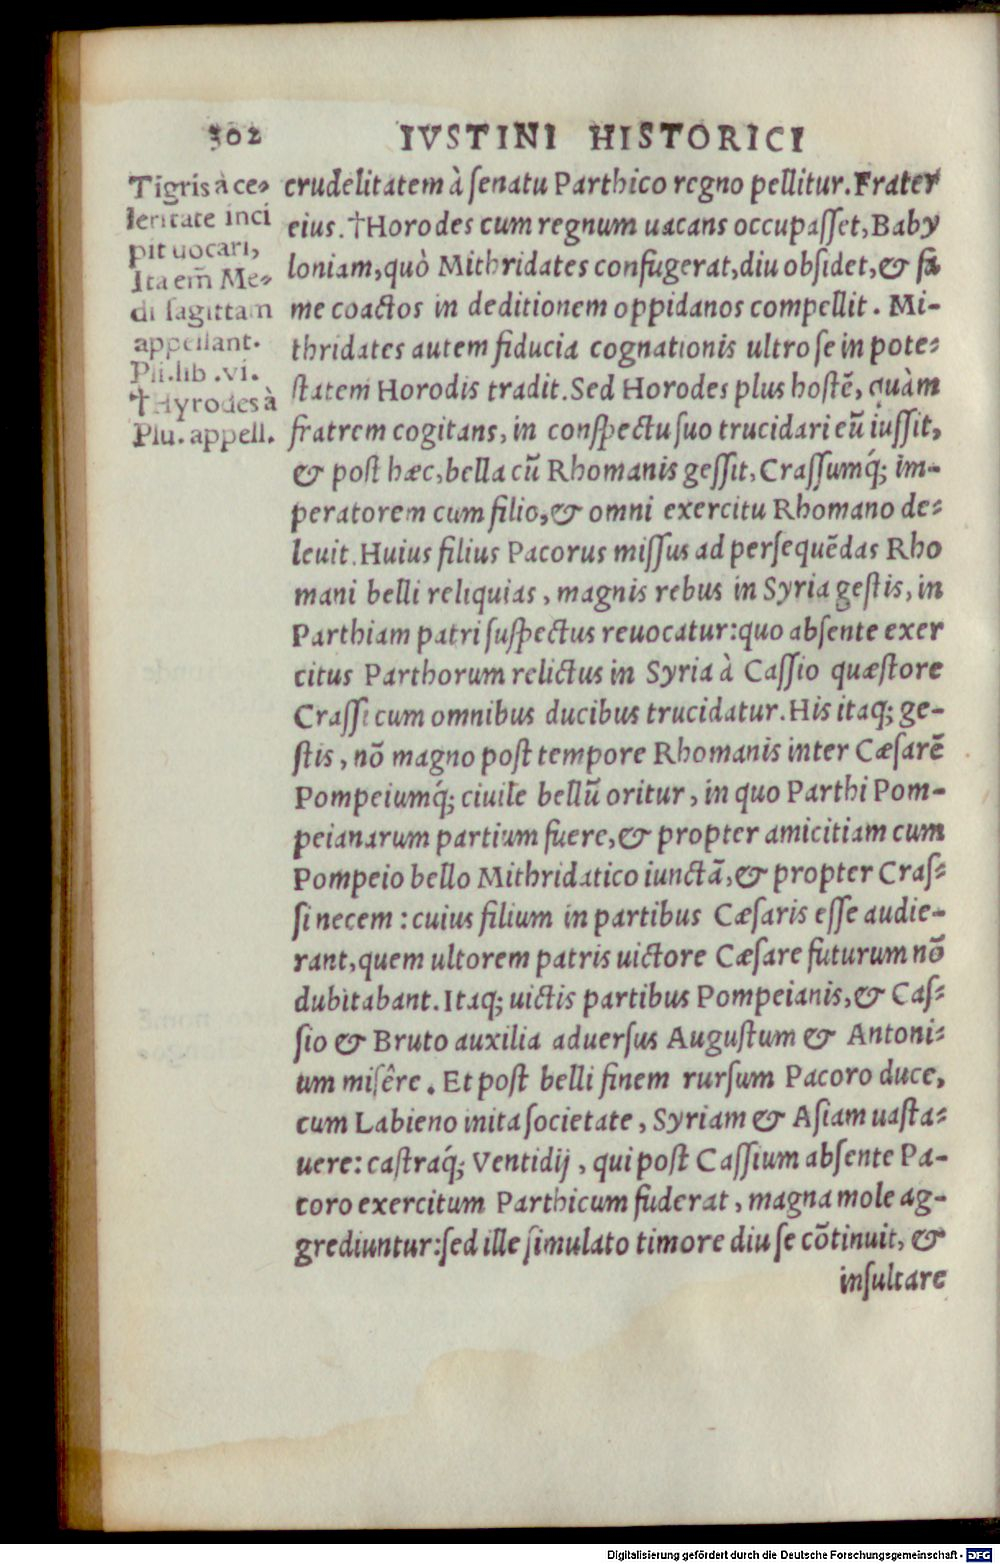 302 IVSTINI HISTORICI
Tigris à ce-
leritate inci
pit uocari,
Ita em̃ Me-
di sagittam
appellant.
Pli.lib .vi.
†Hyrodes à
Plu. appell.
crudelitatem à ſenatu Parthico regno pellitur. Frater
eius. †Horodes cum regnum uacans occupaſſet, Baby
loniam, quò Mithridates confugerat, diu obſidet, & fa
me coactos in deditionem oppidanos compellit. Mi-
thridates autem fiducia cognationis ultro ſe in pote-
ſtatem Horodis tradit. Sed Horodes plus hoſtē, quàm
fratrem cogitans, in conſpectu ſuo trucidari eũ iuſſit,
& poſt hæc, bella cũ Rhomanis geſſit, Craſſumq́; im-
peratorem cum filio, & omni exercitu Rhomano de-
leuit. Huius filius Pacorus miſſus ad perſequēdas Rho
mani belli reliquias, magnis rebus in Syria geſtis, in
Parthiam patri ſuſpectus reuocatur: quo abſente exer
citus Parthorum relictus in Syria à Caſſio quæſtore
Craſſi cum omnibus ducibus trucidatur. His itaq; ge-
ſtis, nō magno poſt tempore Rhomanis inter Cæſarē
Pompeiumq́; ciuile bellũ oritur, in quo Parthi Pom-
peianarum partium fuere, & propter amicitiam cum
Pompeio bello Mithridatico iunctã, & propter Craſ-
ſi necem: cuius filium in partibus Cæſaris eſſe audie-
rant, quem ultorem patris uictore Cæſare futurum nō
dubitabant. Itaq; uictis partibus Pompeianis, & Caſ-
ſio & Bruto auxilia aduerſus Auguſtum & Antoni-
um miſêre. Et poſt belli finem rurſum Pacoro duce,
cum Labieno inita ſocietate, Syriam & Aſiam uaſta-
uere: caſtraq́; Ventidij, qui poſt Caſſium abſente Pa-
coro exercitum Parthicum fuderat, magna mole ag-
grediuntur: ſed ille ſimulato timore diu ſe cõtinuit, &
inſultare
Digitalisierung gefördert durch die Deutsche Forschungsgemeinschaft - DFG